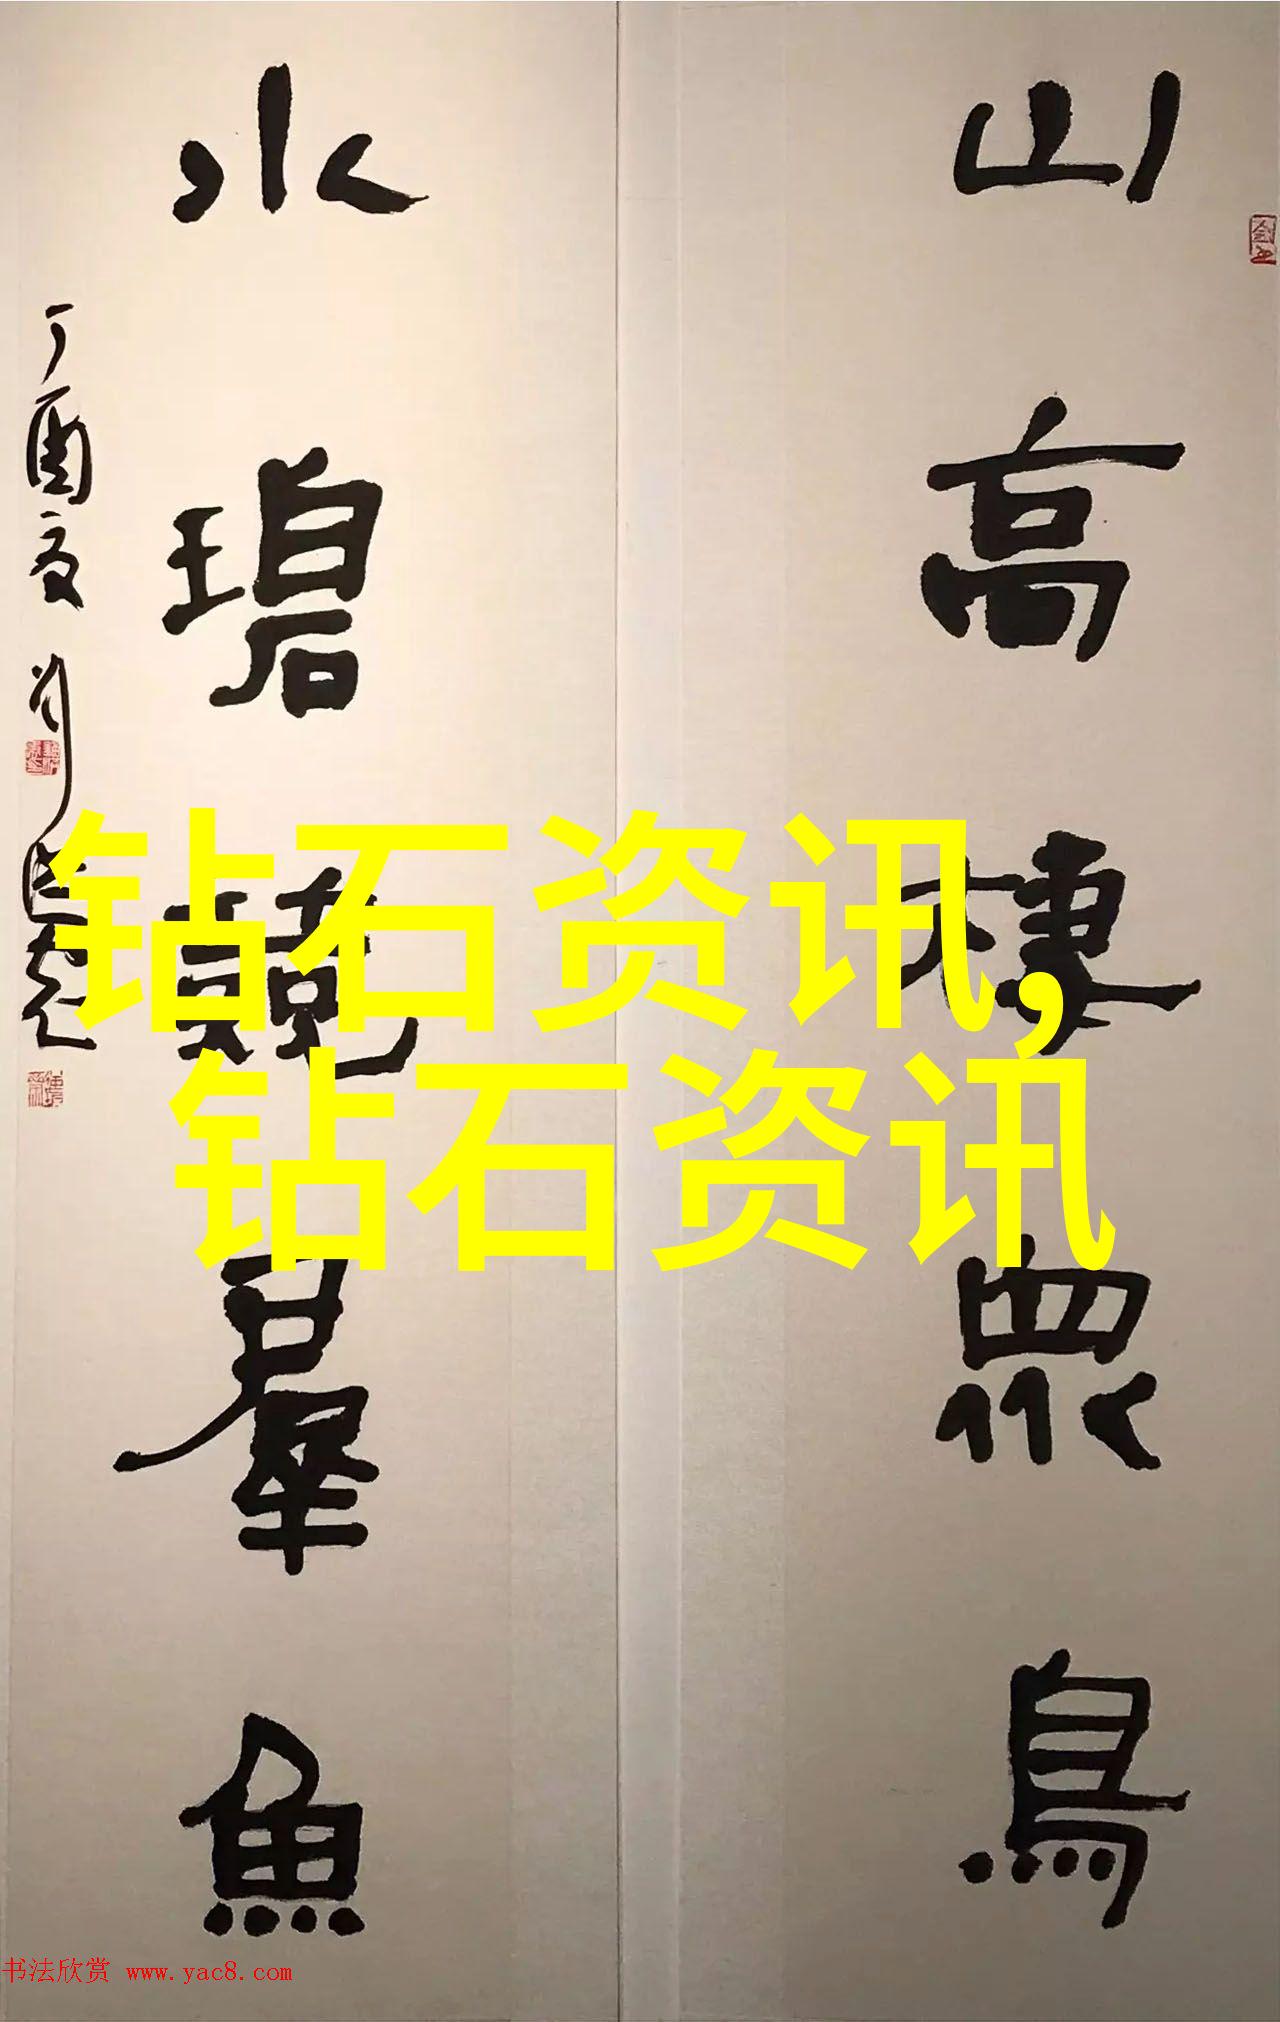 山高棲眾鳥
水碧競羣魚
丁酉夏
钻石资讯,
钻石资讯
书法欣赏 www.yac8.com